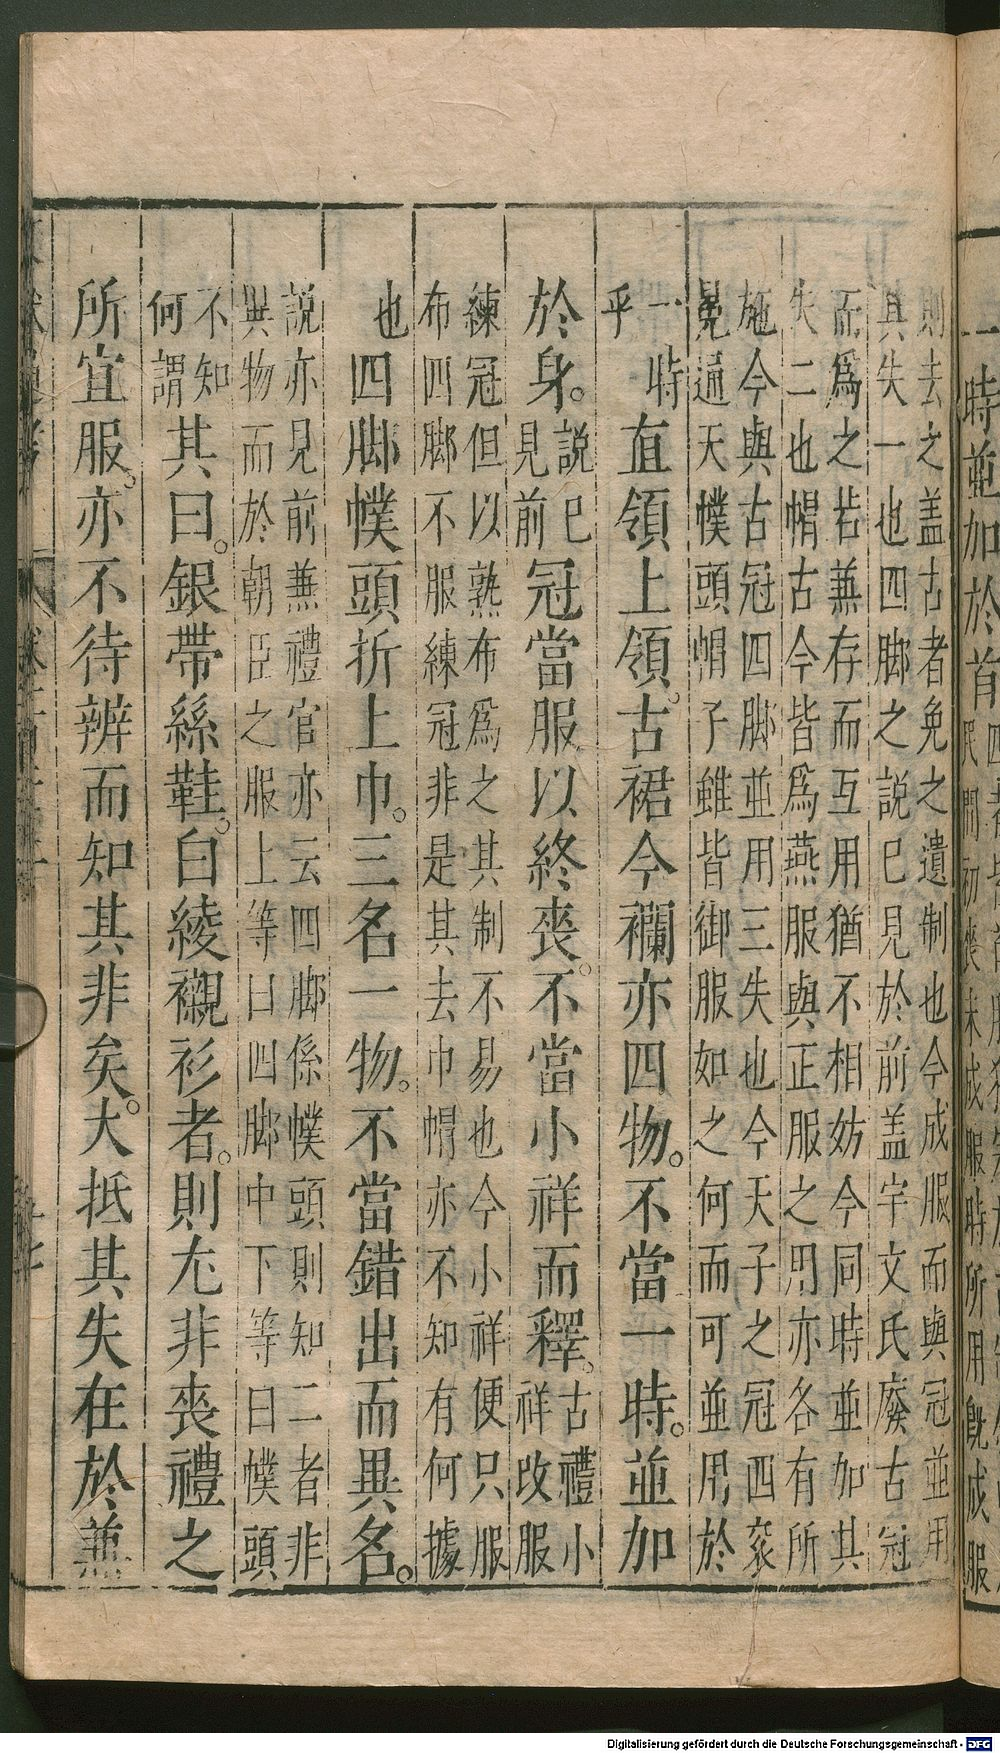 則去之盖古者免之遺制也今成服而與冠並用
其失一也四脚之說已見於前盖宇文氏廢古冠
而爲之若兼存而互用猶不相妨今同時並加其
失二也帽古今皆爲燕服與正服之用亦各有所
施今與古冠四脚並用三失也今天子之冠四衮
冕通天幞頭帽子雖皆御服如之何而可並用於
一時
乎
直領上領。古裙今襴亦四物。不當一時。並加
於身。
說已
見前
冠當服以終喪。不當小祥而釋。
古禮小
祥改服
練冠但以熟布爲之其制不易也今小祥便只服
布四脚不服練冠非是其去巾帽亦不知有何據
也
四脚幞頭折上巾。三名一物。不當錯出而異名。
說亦見前兼禮官亦云四脚係幞頭則知二者非
異物而於朝臣之服上等曰四脚中下等曰幞頭
不知
何謂
其曰。銀帶絲鞋。白綾襯衫者。則尤非喪禮之
所宜服。亦不待辨而知其非矣。大抵其失在於兼
一時並加於首
民間初喪未成服時所用旣成服
Digitalisierung gefördert durch die Deutsche Forschungsgemeinschaft - DFG